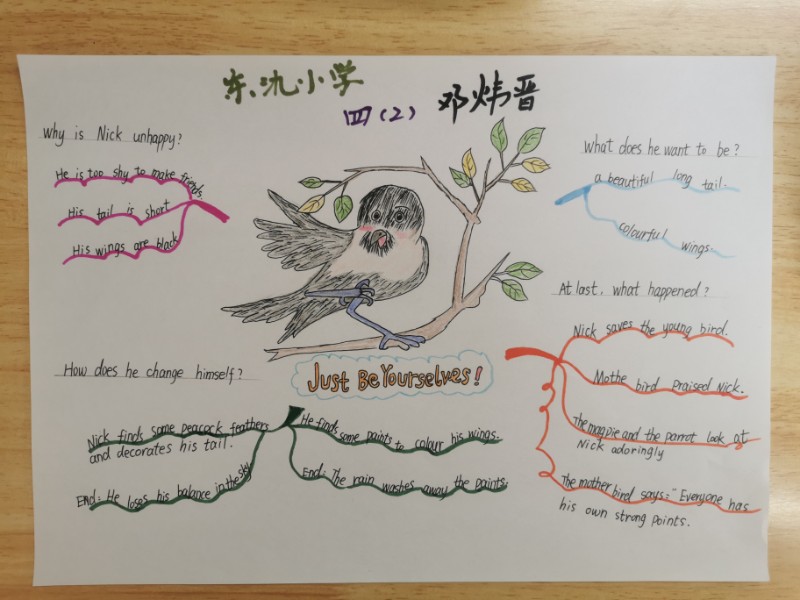 东氿小学
四(2) 邓炜晋
Why is Nick unhappy?
He is too shy to make friends.
His tail is short
His wings are black
What does he want to be?
a beautiful long tail.
colourful wings.
At last, what happened?
Nick saves the young bird.
Mothe bird praised Nick.
The magpie and the parrot look at
Nick adoringly
The mother bird says: "Everyone has
his own strong points.
Just Be Yourselves!
How does he change himself?
Nick finds some peacock feathers
and decorates his tail.
End: He loses his balance in the sky
He finds some paints to colour his wings.
End: The rain washes away the paints.